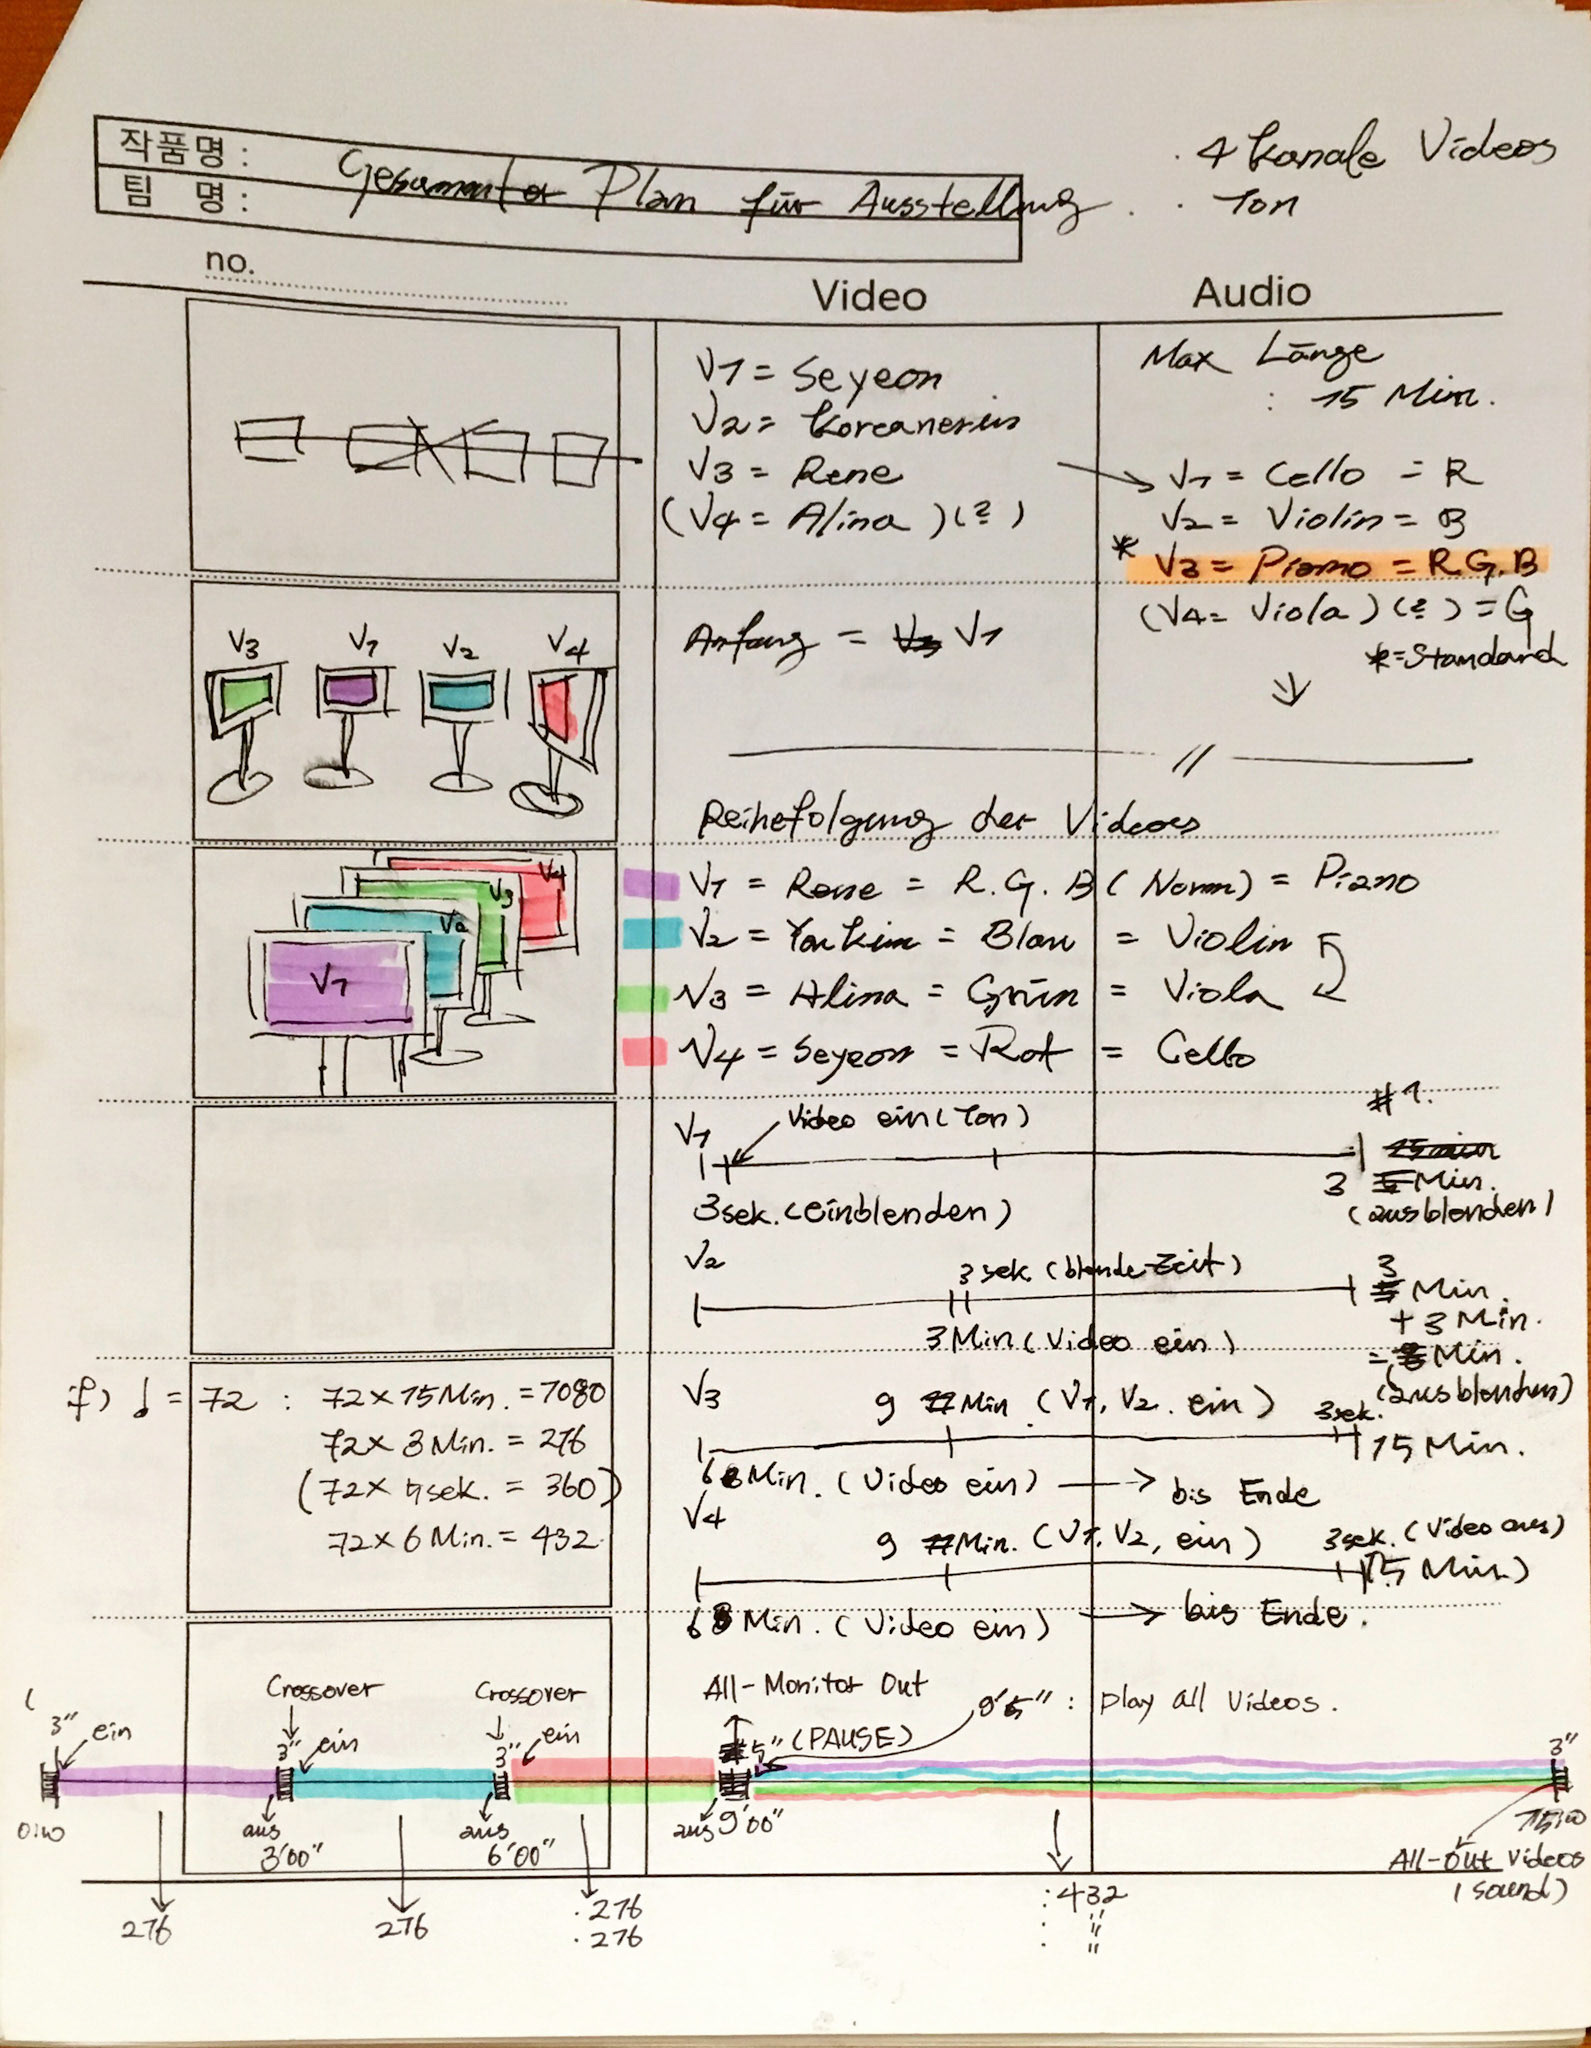 작품명 :
팀 명 :
Gesamter Plan für Ausstellung
· 4 Kanale Videos
· Ton
no.
Video
Audio
V1 = Seyeon
V2 = Koreanerin
V3 = Rene
(V4 = Alina) (?)
Max Länge
: 15 Min.
V1 = Cello = R
V2 = Violin = B
* V3 = Piano = R.G.B
(V4 = Viola) (?) = G
* = Standard
V3 V1 V2 V4
Anfang = V3 V1
Reihefolgung der Videos
V1
V2
V3
V4
V1 = Rene = R.G.B (Norm) = Piano
V2 = Yon Kim = Blau = Violin
V3 = Alina = Grün = Viola
V4 = Seyeon = Rot = Cello
#1.
V1
Video ein (Ton)
15 min
3 5 Min.
3 sek. (einblenden)
(ausblenden)
V2
3 sek. (blende-Zeit)
3 Min.
+ 3 Min.
3 Min (Video ein)
= Min.
(ausblenden)
if) ♩ = 72 : 72 x 15 Min. = 1080
72 x 3 Min. = 276
(72 x 5 sek. = 360)
72 x 6 Min. = 432
V3
9 Min (V1, V2. ein)
3 sek.
15 Min.
6 8 Min. (Video ein) → bis Ende
V4
9 Min. (V1, V2, ein)
3 sek. (Video aus)
15 Min)
6 8 Min. (Video ein) → bis Ende.
Crossover
Crossover
All-Monitor Out
9'5" : play all Videos.
3" ein
3" ein
3" ein
5" (PAUSE)
3"
0:00
aus
3'00"
aus
6'00"
aus 9'00"
15:00
All-Out Videos
(sound)
276
276
· 276
· 276
: 432
· "
· "